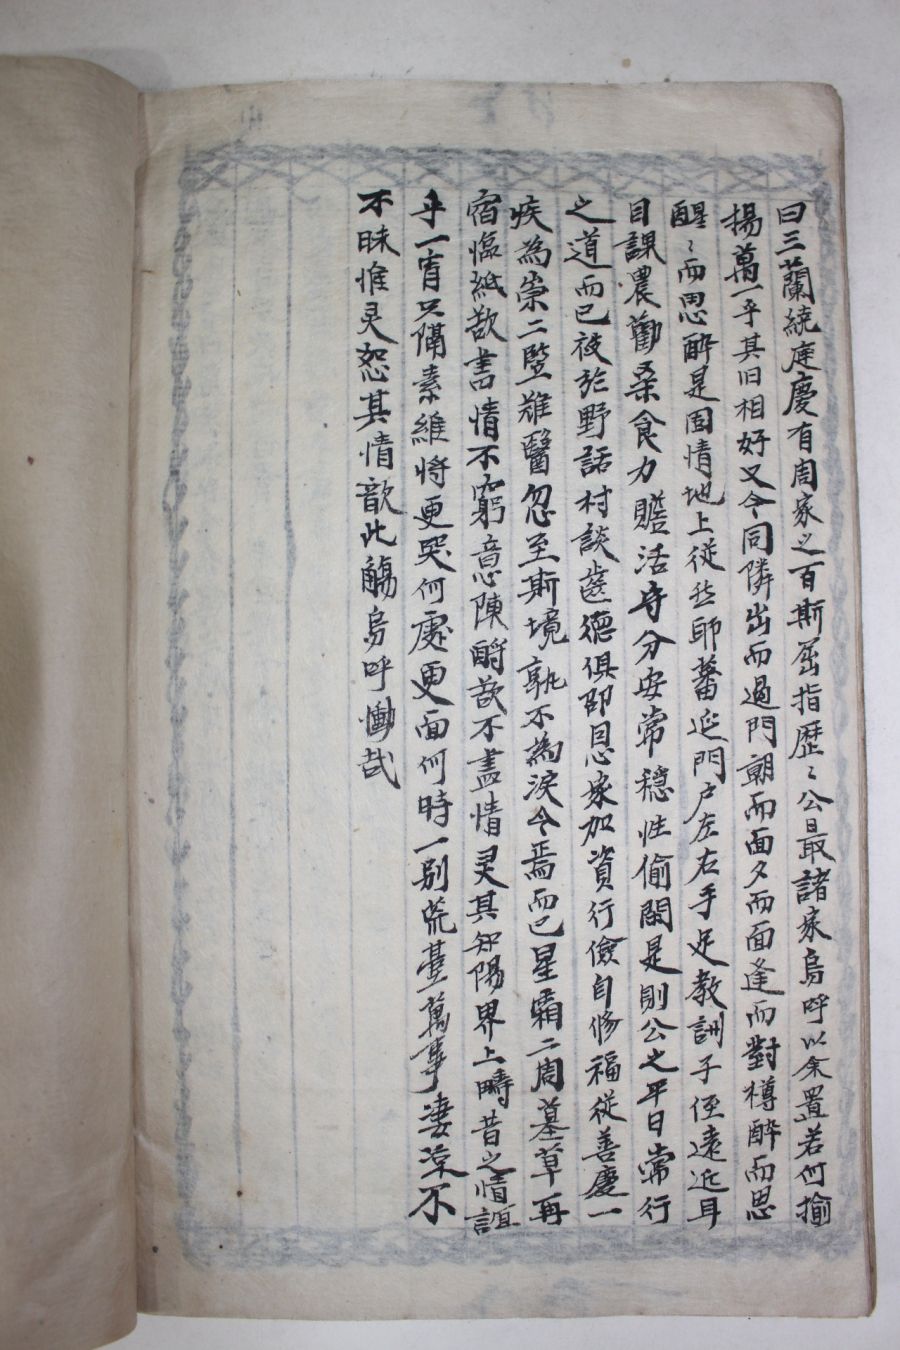 曰三蘭繞庭慶有周家之百斯屈指歷〻公最諸家烏呼以余置若何揄
揚萬一乎其旧相好又今同隣出而過門朝而面夕而面逢而對樽醉而思
醒〻而思醉是固情地上從玆耶蕃延門戶左右手足教訓子侄遠近耳
目課農勸桑食力贍活守分安常穩性偷閑是則公之平日常行
之道而已被於野話村談齒德俱卲恩家加資行儉自修福從善慶一
疾為崇二竪难醫忽至斯境孰不為淚今焉而已星霜二周墓草再
宿臨紙欲書情不窮意陳酹欲不盡情灵其知陽界上疇昔之情誼
乎一宵只隔素維將更哭何處更面何時一別荒臺萬事凄凉不
不昧惟灵恕其情歆此觴烏呼慟哉